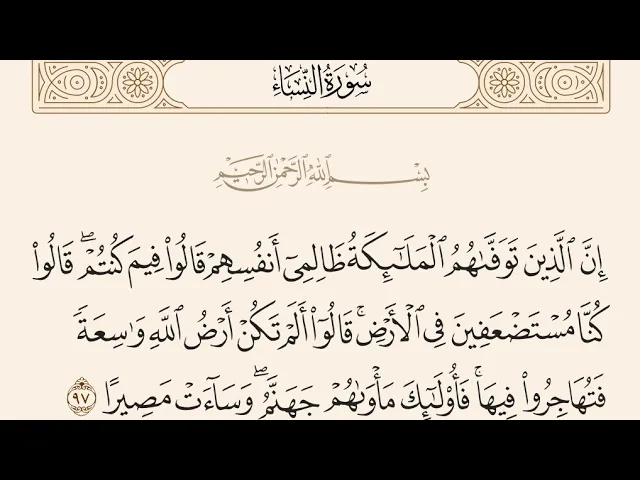 سُورَةُ النِّسَاءِ
بِسْمِ ٱللَّهِ ٱلرَّحْمَٰنِ ٱلرَّحِيمِ
إِنَّ ٱلَّذِينَ تَوَفَّىٰهُمُ ٱلْمَلَٰٓئِكَةُ ظَالِمِىٓ أَنفُسِهِمْ قَالُوا۟ فِيمَ كُنتُمْ ۖ قَالُوا۟
كُنَّا مُسْتَضْعَفِينَ فِى ٱلْأَرْضِ ۚ قَالُوٓا۟ أَلَمْ تَكُنْ أَرْضُ ٱللَّهِ وَٰسِعَةً
فَتُهَاجِرُوا۟ فِيهَا ۚ فَأُو۟لَٰٓئِكَ مَأْوَىٰهُمْ جَهَنَّمُ ۖ وَسَآءَتْ مَصِيرًا ٩٧